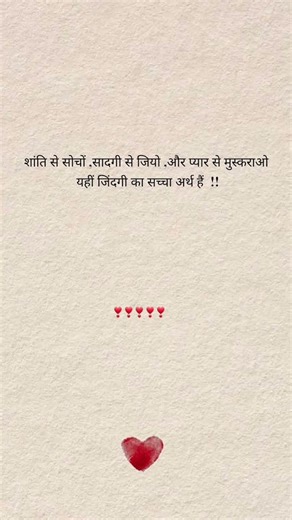 शांति से सोचों ,सादगी से जियो ,और प्यार से मुस्कराओ
यहीं जिंदगी का सच्चा अर्थ हैं !!
❣❣❣❣❣